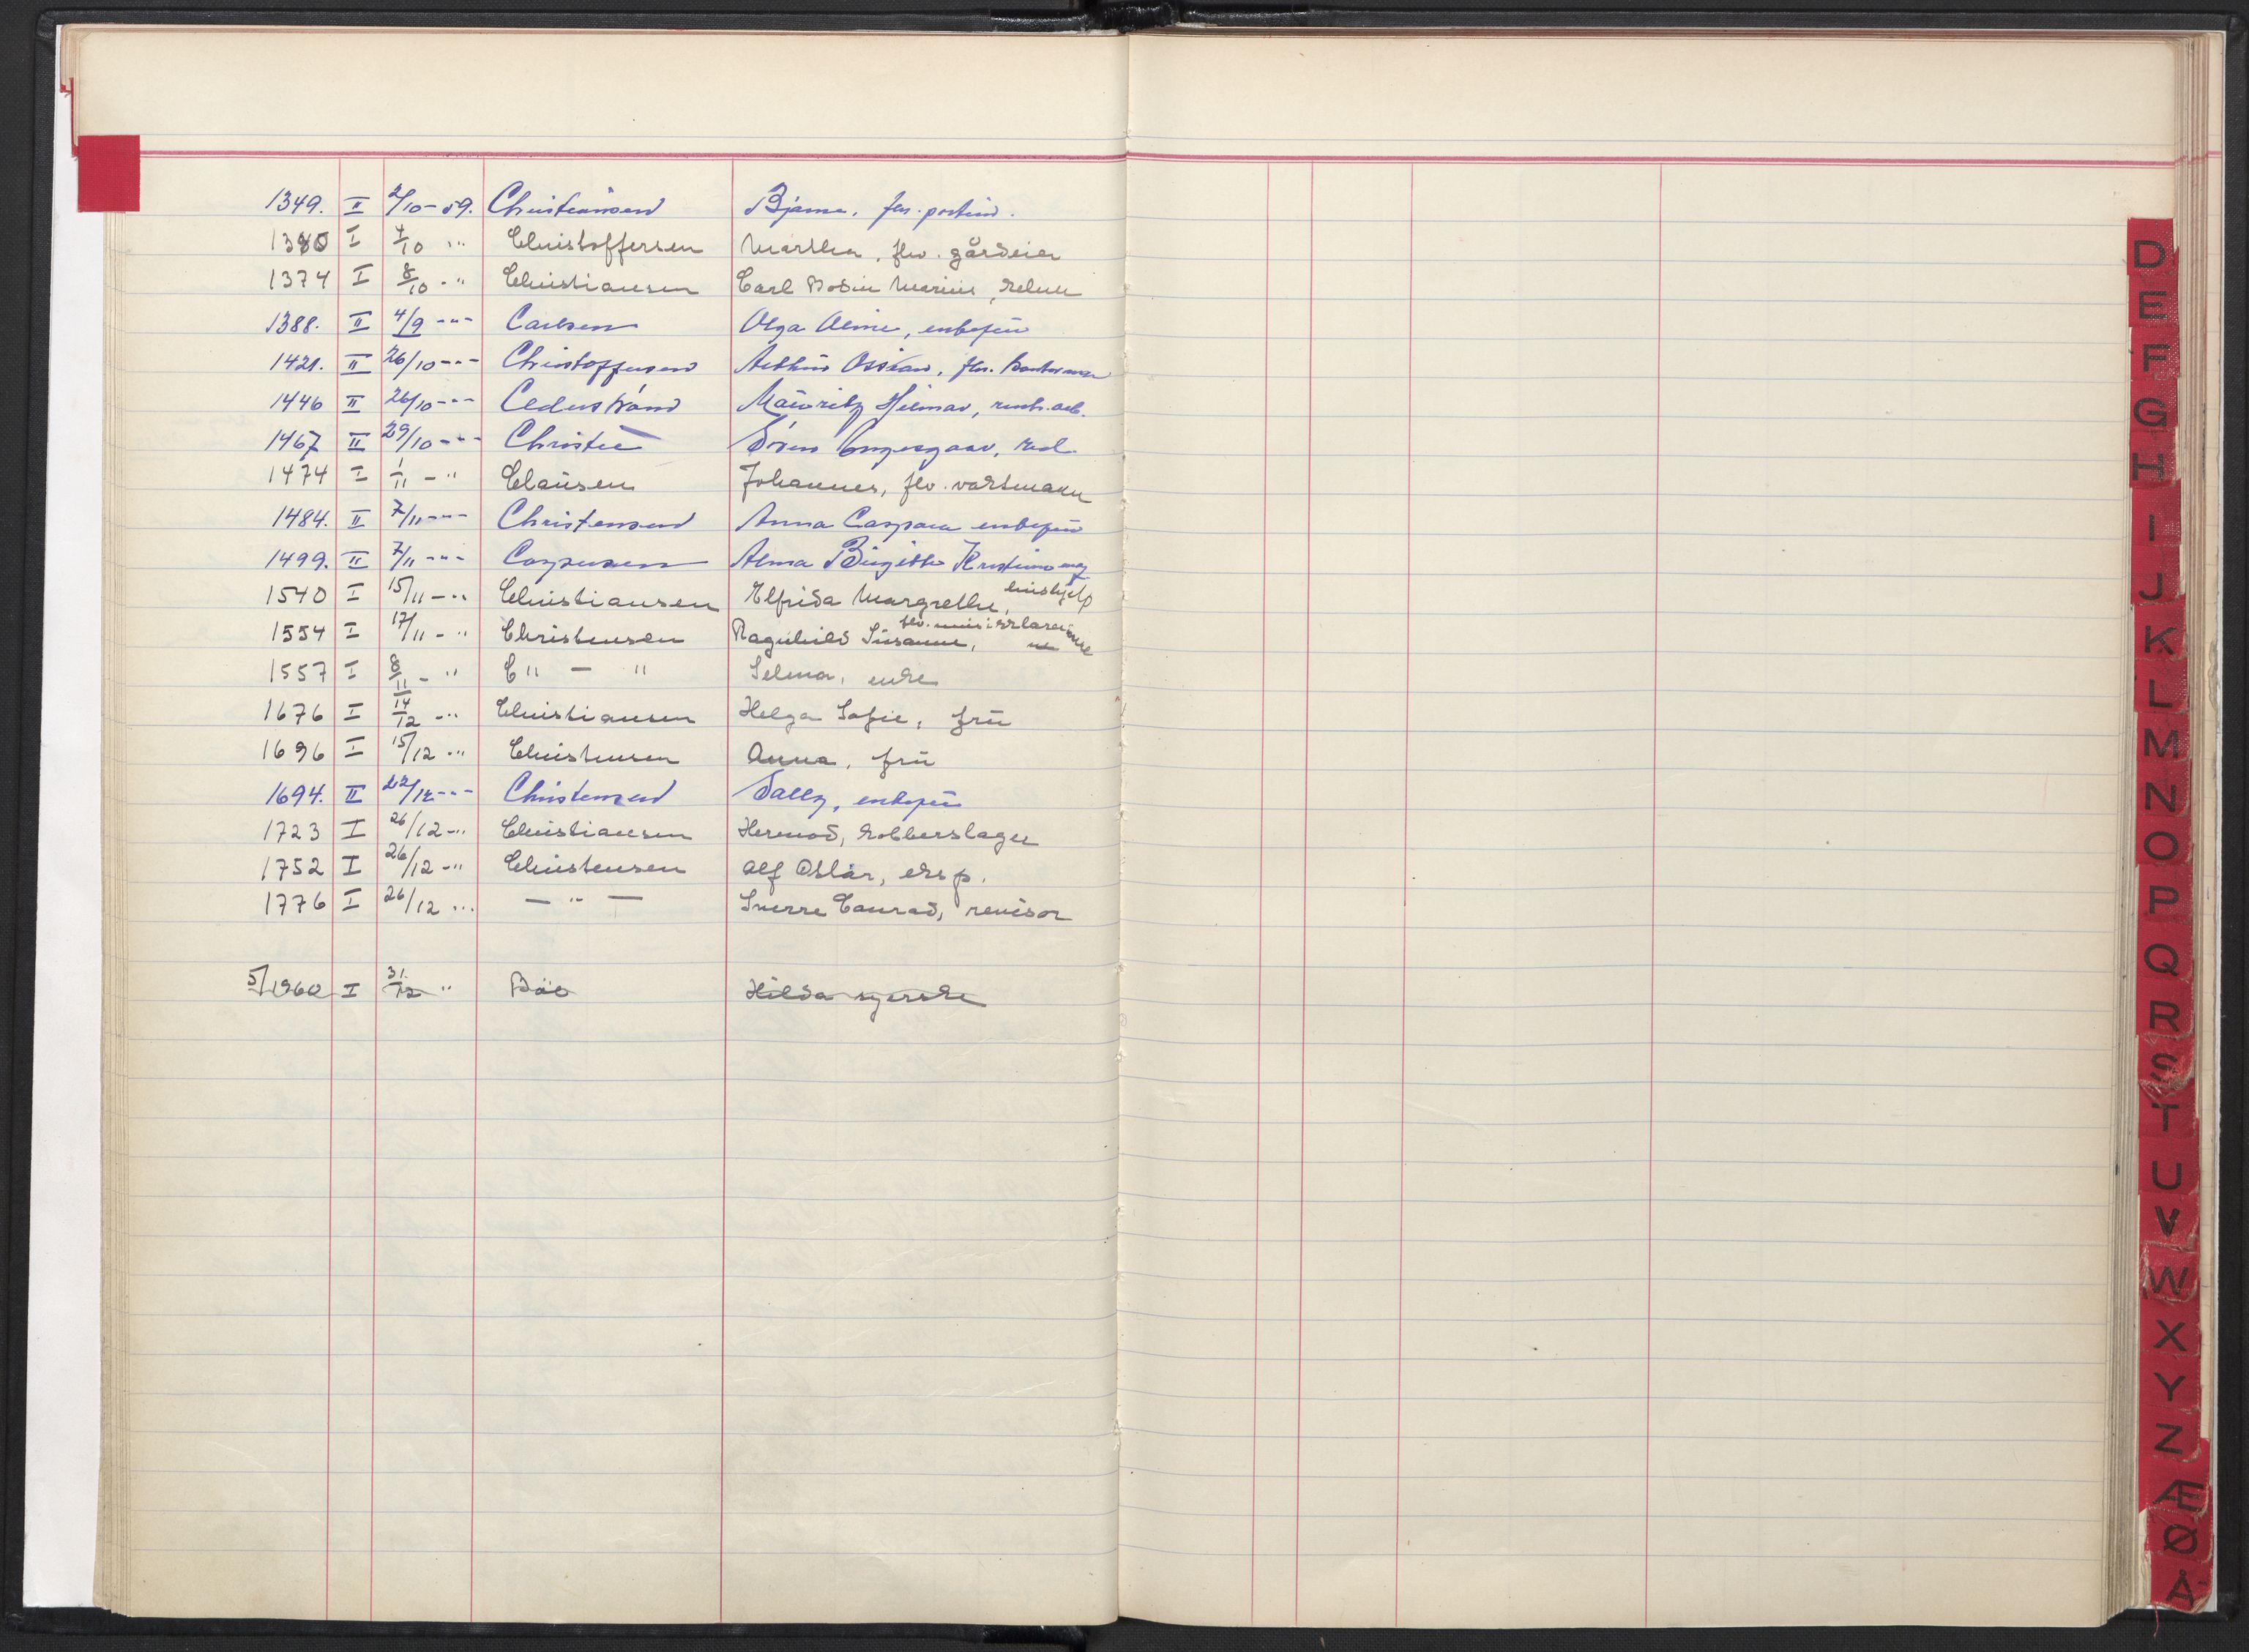 1349. II 2/10-59. Christiansen Bjarne, fhv. postbud.
1380 I 7/10 " Christoffersen Martha, fhv. gårdeier
1374 I 8/10 - " Christiansen Carl Bodin Marius,
1388. II 4/9 - " - Carlsen Olga Aline, enkefru
1421. II 26/10 - " - Christoffersen Arthur Ossian, fhv.
1446 II 26/10 - " - Cederstrand Mauritz Hilmar,
1467 II 29/10 - " - Christie Søren
1474 I 1/11 - " Clausen Johannes, fhv. vaktmann
1484. II 7/11 - " - Christensen Anna Caspara enkefru
1499. II 7/11 - " - Caspersen Alma Birgitte Kristine
1540 I 15/11 - " Christiansen Elfrida Margrethe, hushjelp
1554 I 17/11 - " Christensen Ragnhild Susanne, fhv.
1557 I 8/11 - " C " - " Selma, enke
1676 I 14/12 - " Christiansen Helga Sofie, fru
1696 I 15/12 - " Christensen Anna, fru
1694. II 22/12 - " - Christensen Dally, enkefru
1723 I 26/12 - " Christiansen Hermod, kobberslager
1752 I 26/12 - " Christensen Alf Oskar, eksp.
1776 I 26/12 " - " - Sverre Conrad, revisor
5/1960 I 31/12 " Bøe Hilda syerske
D
E
F
G
H
I
J
K
L
M
N
O
P
Q
R
S
T
U
V
W
X
Y
Z
Æ
Ø
Å